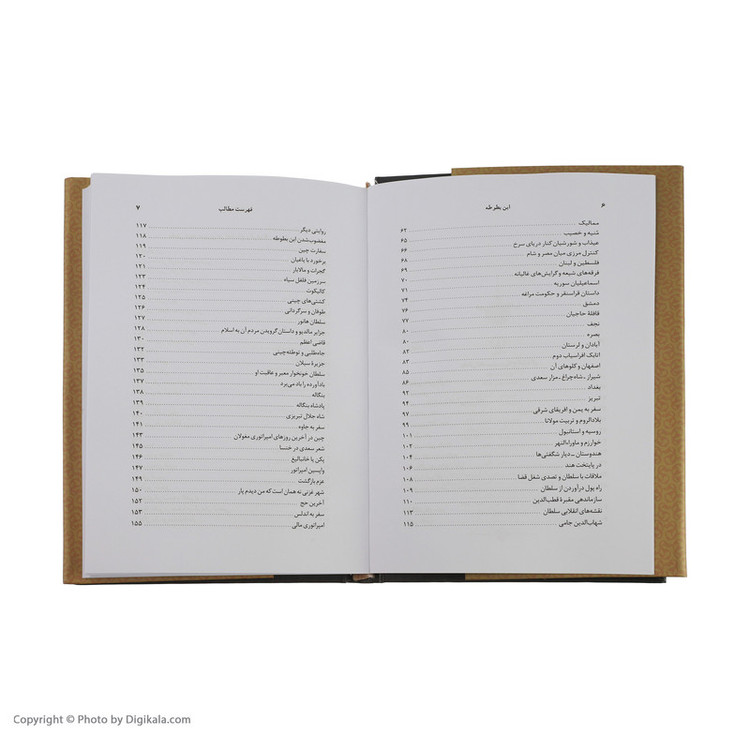 ۶ ابن بطوطه
ممالیک ۶۲
شیبه و خصیب ۶۵
عیذاب و شورشیان کنار دریای سرخ ۶۶
کنترل مرزی میان مصر و شام ۶۸
فلسطین و لبنان ۶۹
فرقه‌های شیعه و گرایش‌های غالیانه ۷۰
اسماعیلیان سوریه ۷۱
داستان قراسنقر و حکومت مراغه ۷۴
دمشق ۷۶
قافلهٔ حاجیان ۷۷
نجف ۸۰
بصره ۸۰
آبادان و لرستان ۸۲
اتابک افراسیاب دوم ۸۳
اصفهان و کلوهای آن ۸۵
شیراز ـ شاه‌چراغ ـ مزار سعدی ۸۶
بغداد ۹۲
تبریز ۹۴
سفر به یمن و آفریقای شرقی ۹۷
بلادالروم و تربیت مولانا ۹۹
روسیه و استانبول ۱۰۱
خوارزم و ماوراءالنهر ۱۰۳
هندوستان ـ دیار شگفتی‌ها ۱۰۴
در پایتخت هند ۱۰۶
ملاقات با سلطان و تصدی شغل قضا ۱۰۸
راه پول درآوردن از سلطان ۱۰۹
سازماندهی مقبرهٔ قطب‌الدین ۱۱۰
نقشه‌های انقلابی سلطان ۱۱۳
شهاب‌الدین جامی ۱۱۵
فهرست مطالب ۷
روایتی دیگر ۱۱۷
مغضوب‌شدن ابن بطوطه ۱۱۸
سفارت چین ۱۱۹
برخورد با یاغیان ۱۲۰
گجرات و مالابار ۱۲۱
سرزمین فلفل سیاه ۱۲۳
کالیکوت ۱۲۴
کشتی‌های چینی ۱۲۵
طوفان و سرگردانی ۱۲۶
سلطان هانور ۱۲۷
جزایر مالدیو و داستان گرویدن مردم آن به اسلام ۱۲۸
قاضی اعظم ۱۳۰
جاه‌طلبی و توطئه‌چینی ۱۳۲
جزیرهٔ سیلان ۱۳۳
سلطان خونخوار معبر و عاقبت او ۱۳۵
بادآورده را باد می‌برد ۱۳۷
بنگاله ۱۳۸
پادشاه بنگاله ۱۳۹
شاه جلال تبریزی ۱۴۰
سفر به جاوه ۱۴۱
چین در آخرین روزهای امپراتوری مغولان ۱۴۳
شعر سعدی در خنسا ۱۴۵
پکن یا خانبالیغ ۱۴۶
واپسین امپراتور ۱۴۷
عزم بازگشت ۱۴۹
شهر غزنی نه همان است که من دیدم پار ۱۵۰
آخرین حج ۱۵۲
سفر به اندلس ۱۵۳
امپراتوری مالی ۱۵۵
Copyright © Photo by Digikala.com